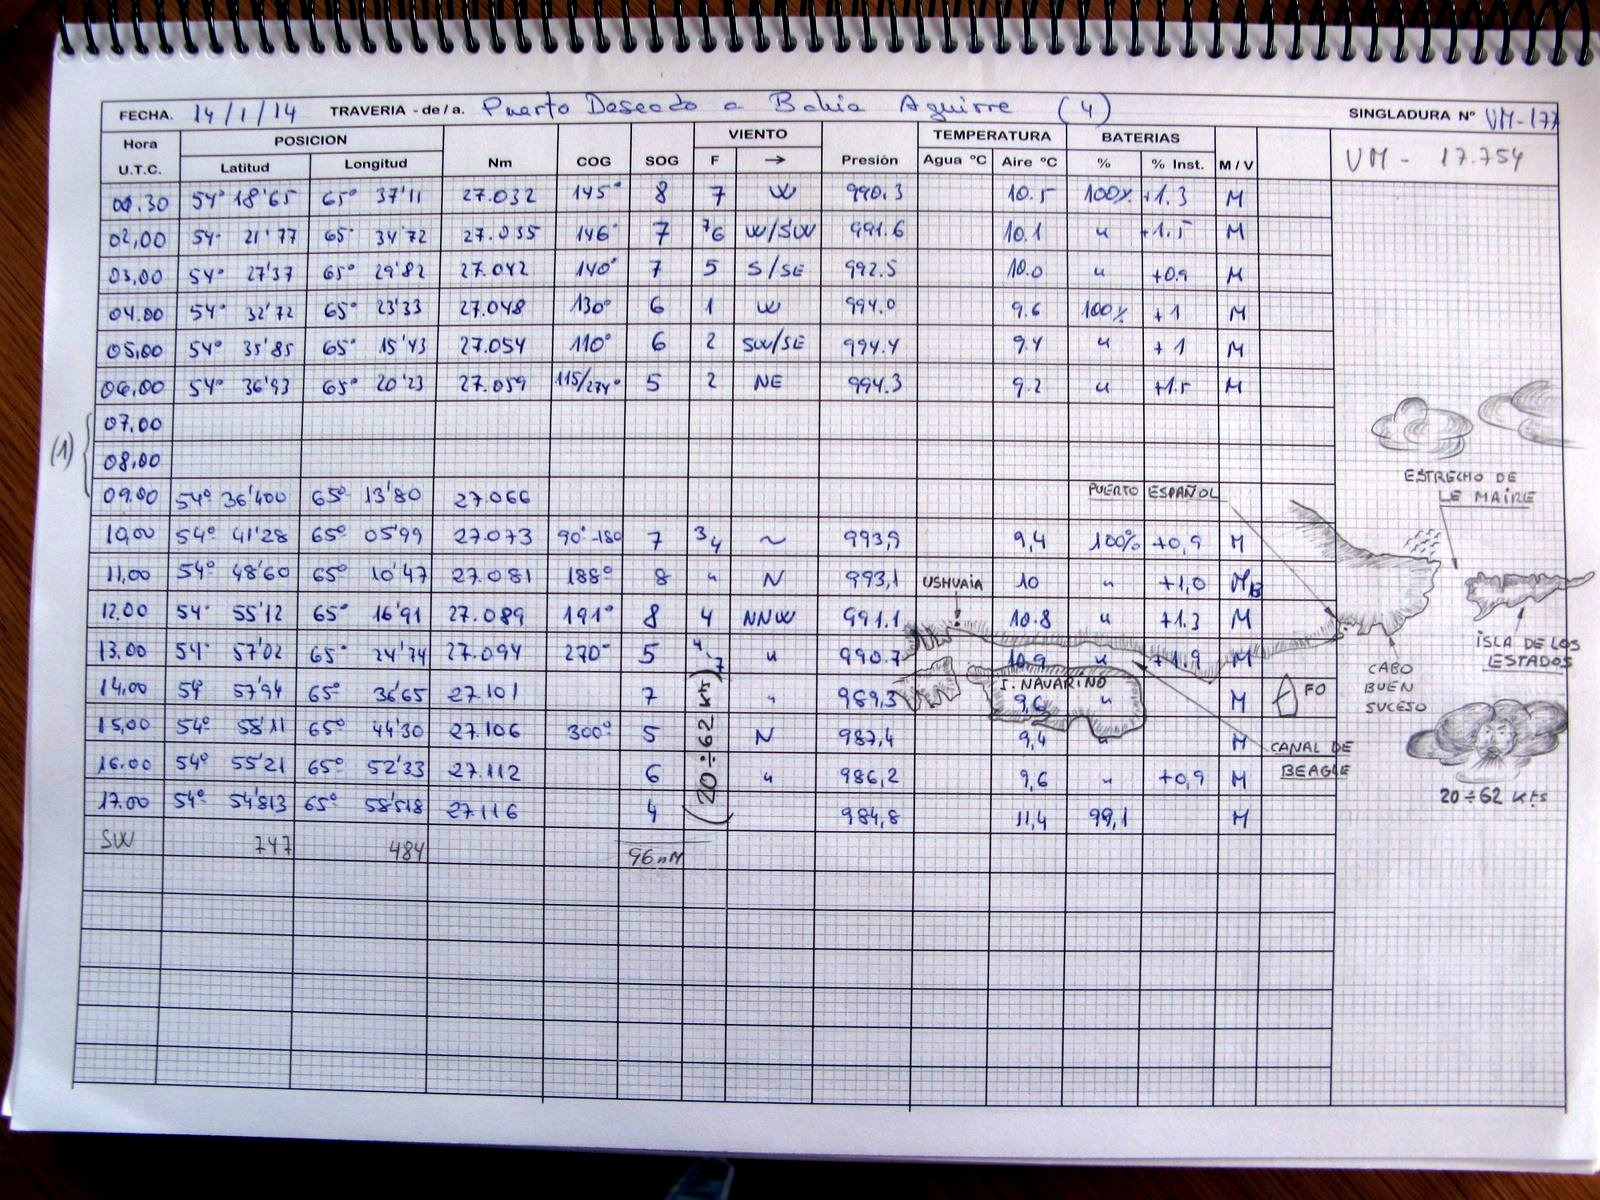 FECHA. 14/1/14 TRAVERIA - de / a. Puerto Deseado a Bahia Aguirre (4) SINGLADURA Nº VM-177
Hora U.T.C. POSICION Latitud Longitud Nm COG SOG VIENTO F → Presión TEMPERATURA Agua ºC Aire ºC BATERIAS % % Inst. M / V VM - 17.754
00.30 54º 18'65 65º 37'11 27.032 145º 8 7 W 990.3 10.5 100% +1.3 M
02,00 54º 21'77 65º 34'72 27.035 146º 7 76 W/SW 991.6 10.1 " +1.5 M
03,00 54º 27'37 65º 29'82 27.042 140º 7 5 S/SE 992.5 10.0 " +0.9 M
04.00 54º 32'72 65º 23'33 27.048 130º 6 1 W 994.0 9.6 100% +1 M
05,00 54º 35'85 65º 15'43 27.054 110º 6 2 SW/SE 994.4 9.4 " +1 M
06.00 54º 36'93 65º 20'23 27.059 115/274º 5 2 NE 994.3 9.2 " +1.5 M
(1)
07.00
08.00
09.00 54º 36'400 65º 13'80 27.066
10,00 54º 41'28 65º 05'99 27.073 90º-180 7 3 4 ~ 993,9 9,4 100% +0,9 M
11,00 54º 48'60 65º 10'47 27.081 188º 8 " N 993,1 10 " +1,0 M
12.00 54º 55'12 65º 16'91 27.089 191º 8 4 NNW 991.1 10.8 " +1.3 M
13.00 54º 57'02 65º 24'74 27.094 270º 5 4-7 " 990.7 10.9 " +1.9 M
14,00 54º 57'94 65º 36'65 27.101 7 " 989,3 9,6 " M
15,00 54º 58'11 65º 44'30 27.106 300º 5 N 987,4 9,4 " M
16.00 54º 55'21 65º 52'33 27.112 6 " 986,2 9,6 " +0,9 M
17.00 54º 54'813 65º 58'518 27.116 4 984,8 11,4 99,1 M
(20÷62 kts)
SW 747 484 96 nM
PUERTO ESPAÑOL
ESTRECHO DE
LE MAIRE
USHUAIA
ISLA DE LOS
ESTADOS
CABO
BUEN
SUCESO
I. NAVARINO
FO
CANAL DE
BEAGLE
20÷62 kts